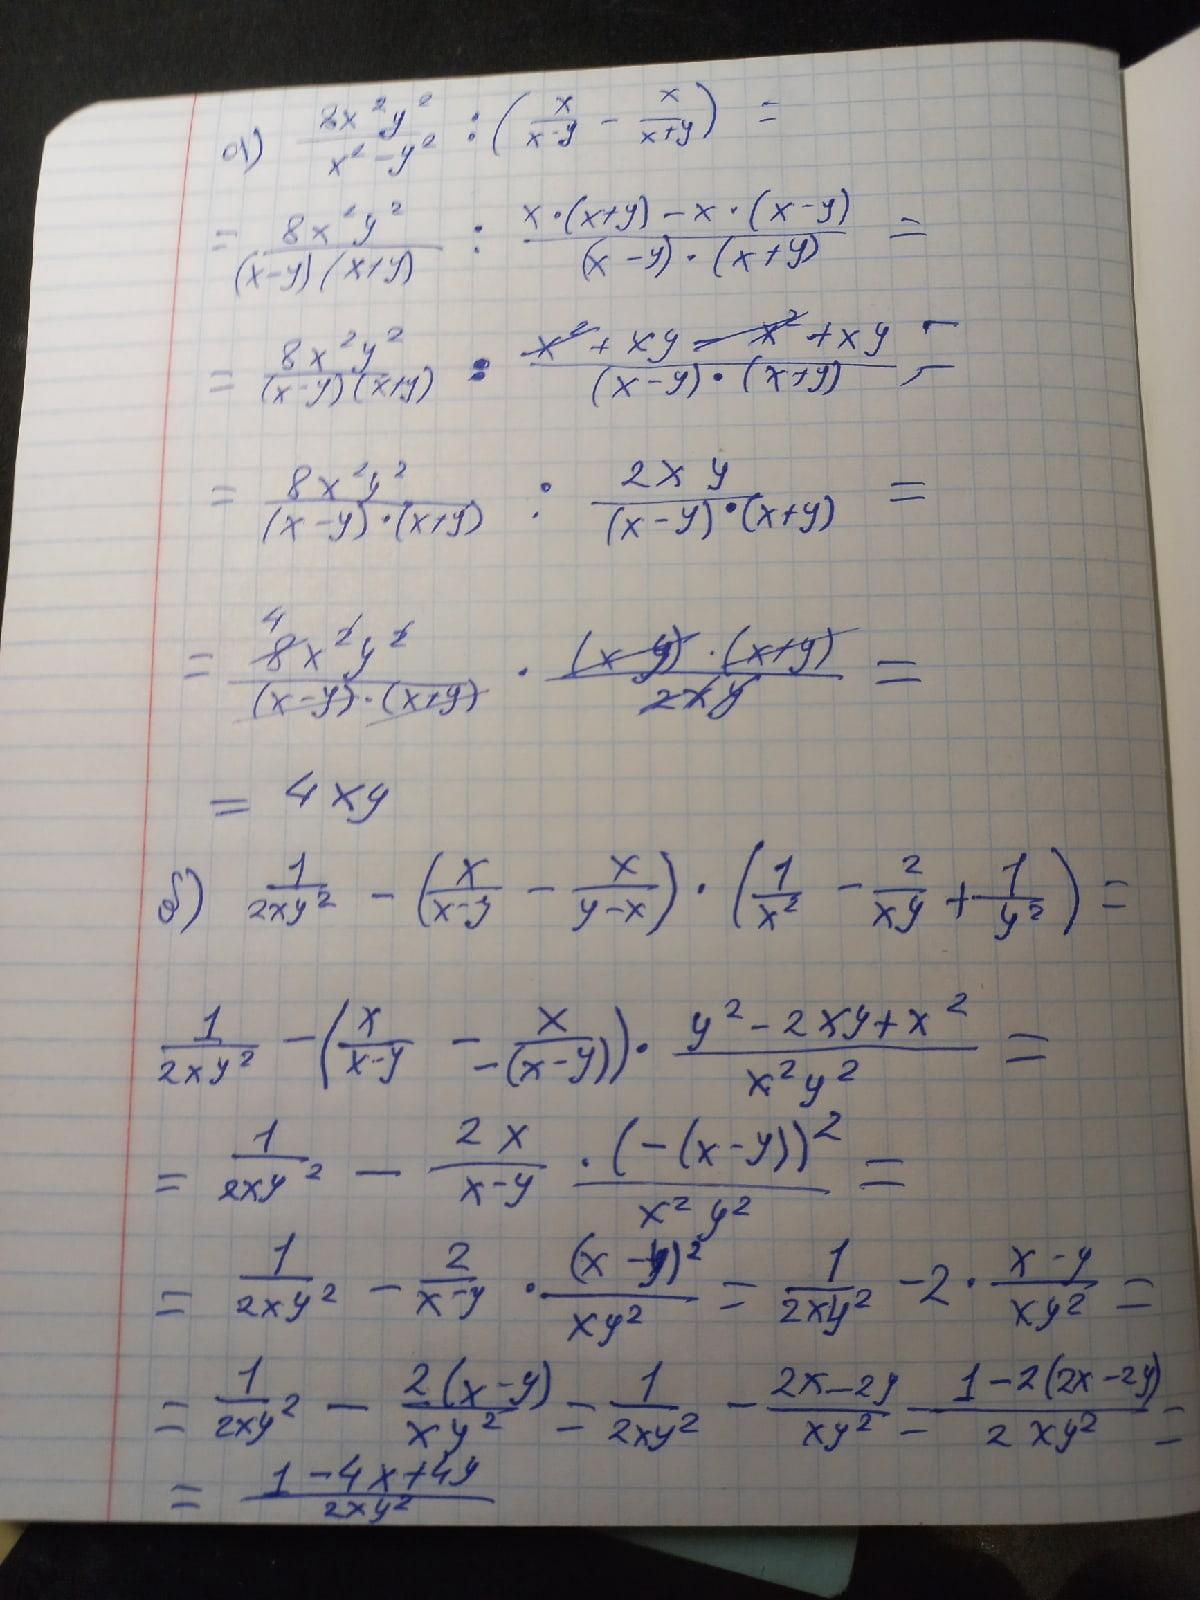 а) 8x²y²/(x²-y²) : (x/(x-y) - x/(x+y)) =
= 8x²y²/((x-y)(x+y)) : (x·(x+y)-x·(x-y))/((x-y)·(x+y)) =
= 8x²y²/((x-y)(x+y)) : (x²+xy-x²+xy)/((x-y)·(x+y)) =
= 8x²y²/((x-y)·(x+y)) : 2xy/((x-y)·(x+y)) =
4
= 8x²y²/((x-y)·(x+y)) · ((x-y)·(x+y))/2xy =
= 4xy
б) 1/2xy² - (x/(x-y) - x/(y-x)) · (1/x² - 2/xy + 1/y²) =
1/2xy² - (x/(x-y) - x/(-(x-y))) · (y²-2xy+x²)/x²y² =
= 1/2xy² - 2x/(x-y) · (-(x-y))²/x²y² =
= 1/2xy² - 2/(x-y) · (x-y)²/xy² = 1/2xy² - 2 · (x-y)/xy² =
= 1/2xy² - 2(x-y)/xy² = 1/2xy² - (2x-2y)/xy² = (1-2(2x-2y))/2xy² =
= (1-4x+4y)/2xy²